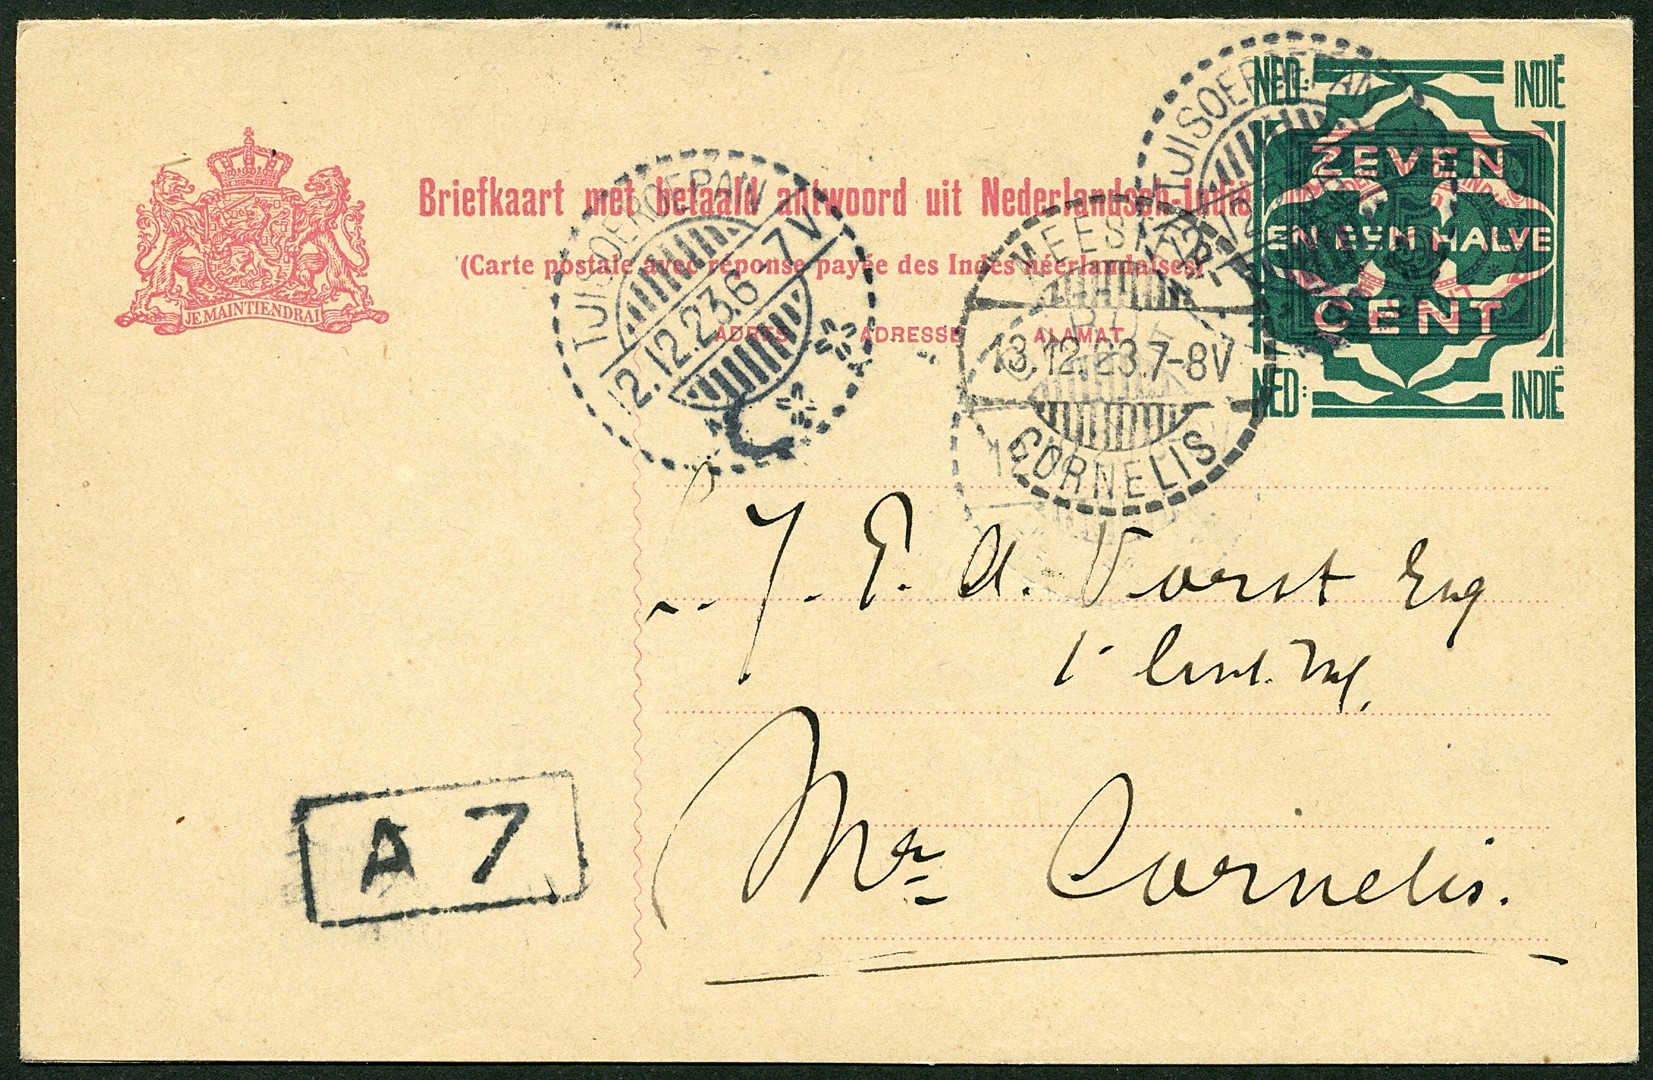 NED: INDIË
ZEVEN
EN EEN HALVE
CENT
NED: INDIË
JE MAINTIENDRAI
Briefkaart met betaald antwoord uit Nederlandsch-Indië
(Carte postale avec réponse payée des Indes néerlandaises)
ADRES ADRESSE ALAMAT
TJISOEROEPAN
12.12.23.6-7V
TJISOEROEPAN
MEESTER
13.12.23.7-8V
CORNELIS
J. E. d. Vorst Esq
Mr Cornelis.
A 7